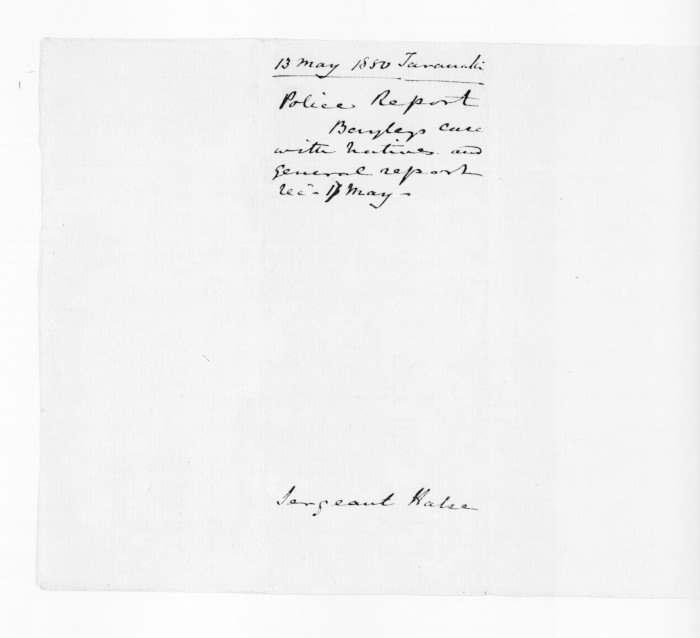 13 May 1850 Taranaki
Police Report
Bayleys case
with Natives and
general report
rec - 17 May -
Sergeant Halse